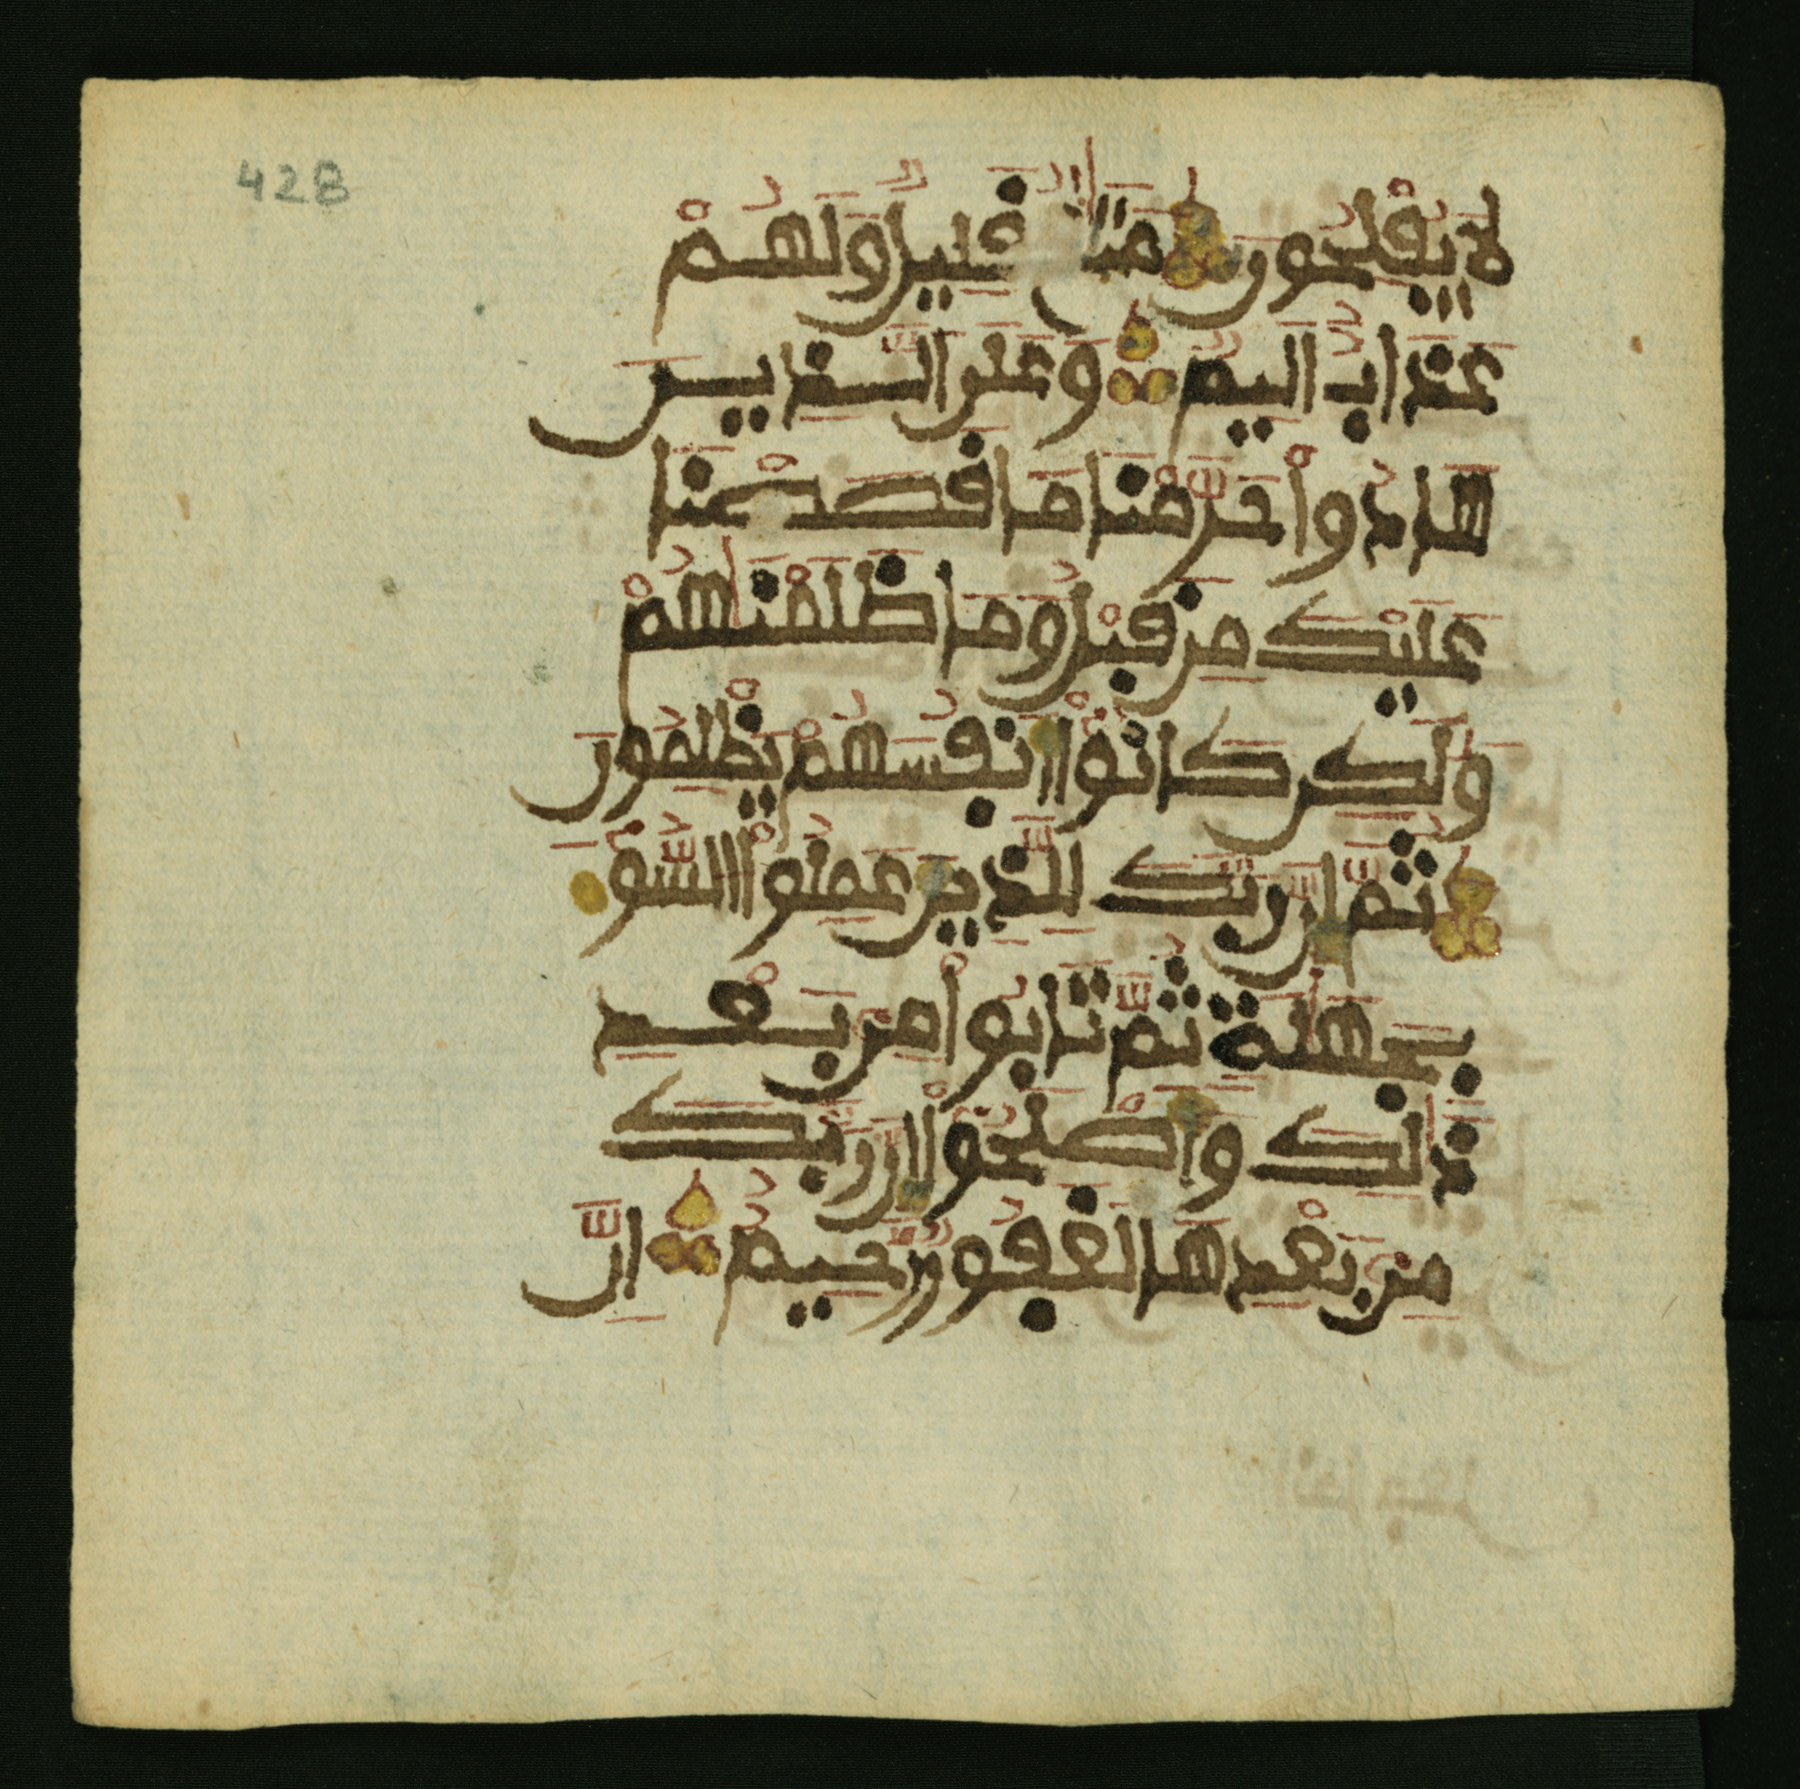 428
لَا يُفْلِحُونَ مَتَٰعٌ قَلِيلٌ وَلَهُمْ
عَذَابٌ أَلِيمٌ وَعَلَى ٱلَّذِينَ
هَادُوا۟ حَرَّمْنَا مَا قَصَصْنَا
عَلَيْكَ مِن قَبْلُ وَمَا ظَلَمْنَٰهُمْ
وَلَٰكِن كَانُوٓا۟ أَنفُسَهُمْ يَظْلِمُونَ
ثُمَّ إِنَّ رَبَّكَ لِلَّذِينَ عَمِلُوا۟ ٱلسُّوٓءَ
بِجَهَٰلَةٍ ثُمَّ تَابُوا۟ مِنۢ بَعْدِ
ذَٰلِكَ وَأَصْلَحُوٓا۟ إِنَّ رَبَّكَ
مِنۢ بَعْدِهَا لَغَفُورٌ رَّحِيمٌ إِنَّ